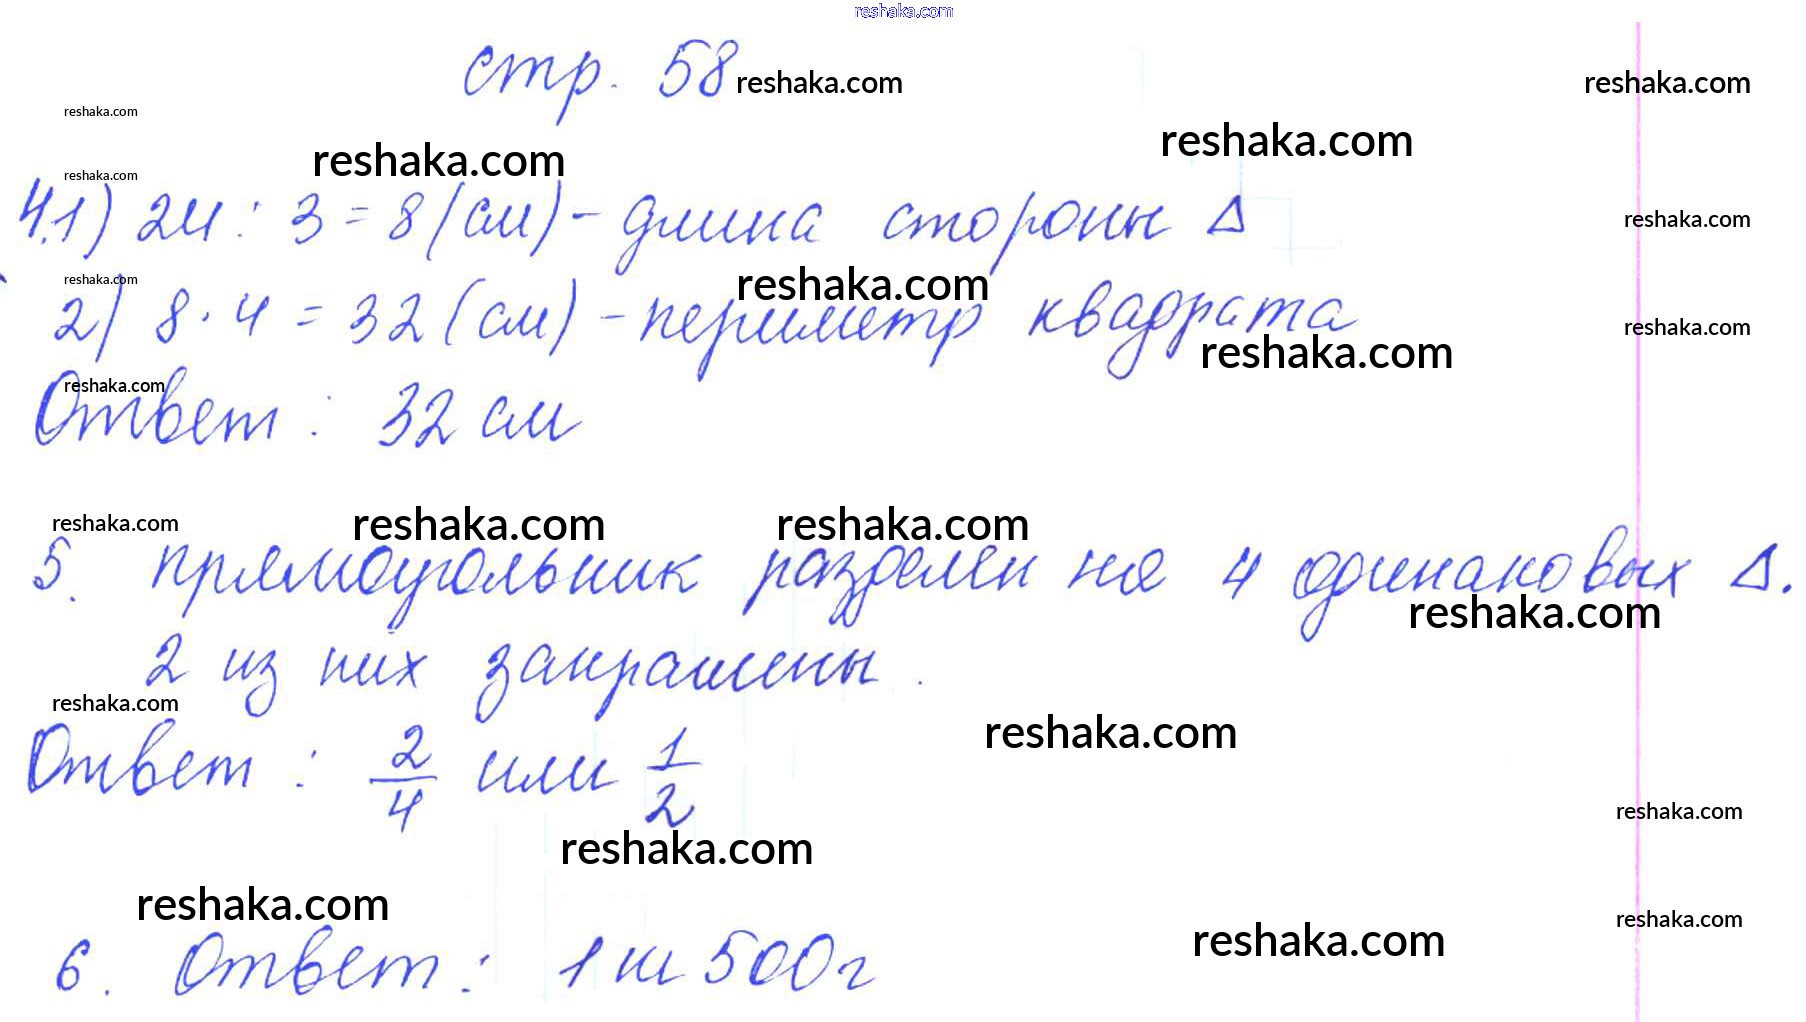 reshaka.com
стр. 58 reshaka.com reshaka.com
reshaka.com
reshaka.com reshaka.com
reshaka.com
4.1) 24 : 3 = 8 (см) - длина стороны Δ reshaka.com
reshaka.com reshaka.com
2) 8 · 4 = 32 (см) - периметр квадрата reshaka.com
reshaka.com
reshaka.com
Ответ : 32 см reshaka.com
reshaka.com reshaka.com reshaka.com
5. Прямоугольник разделен на 4 одинаковых Δ.
reshaka.com
2 из них закрашены.
reshaka.com reshaka.com
Ответ : 2/4 или 1/2
reshaka.com
reshaka.com
reshaka.com reshaka.com
reshaka.com
6. Ответ : 1 кг 500 г